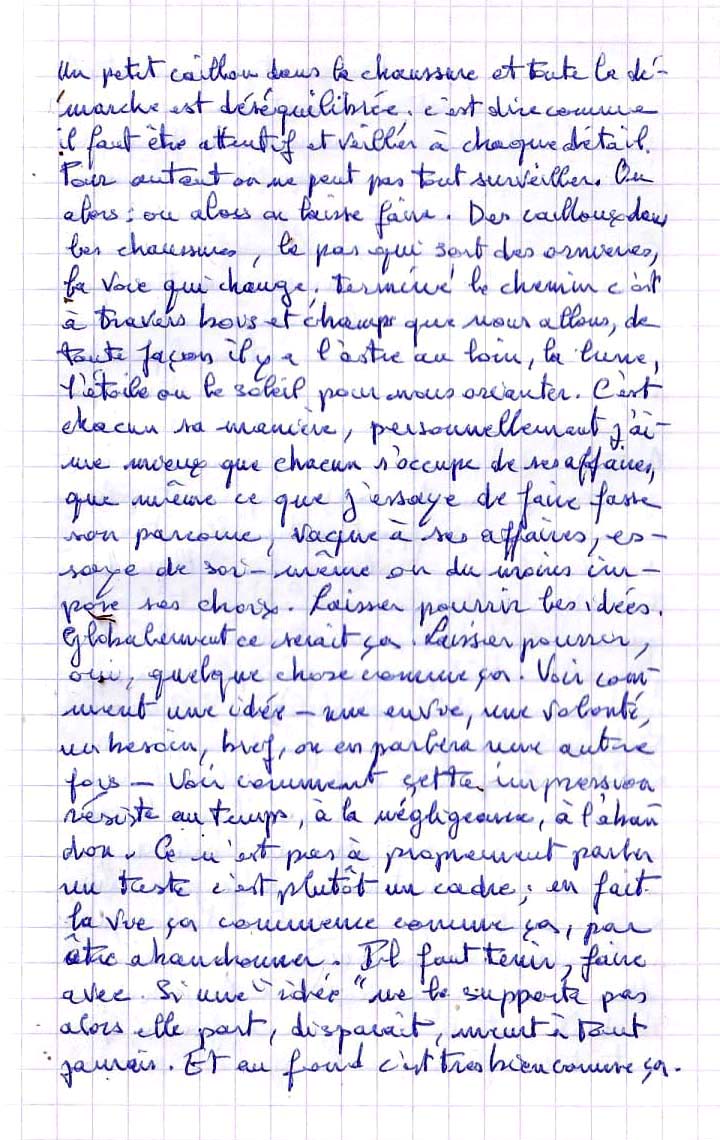 Un petit caillou dans la chaussure et toute la dé-
marche est déséquilibrée. c'est dire comme
il faut être attentif et veiller à chaque détail.
Pour autant on ne peut pas tout surveiller. Ou
alors : ou alors on laisse faire. Des cailloux dans
les chaussures, le pas qui sort des ornières,
la voie qui change. terminé le chemin c'est
à travers bois et champs que nous allons, de
toute façon il y a l'astre au loin, la lune,
l'étoile ou le soleil pour nous orienter. C'est
chacun sa manière, personnellement j'ai-
me mieux que chacun s'occupe de ses affaires,
que même ce que j'essaye de faire fasse
son parcours, vaque à ses affaires, es-
saye de soi-même ou du moins im-
pose ses choix. Laisser pourrir les idées.
Globalement ce serait ça. Laisser pourrir,
oui, quelque chose comme ça. Voir com-
ment une idée – une envie, une volonté,
un besoin, bref, on en parlera une autre
fois – Voir comment cette impression
résiste au temps, à la négligence, à l'aban
don. Ce n'est pas à proprement parler
un test c'est plutôt un cadre ; en fait
la vie ça commence comme ça, par
être abandonner. Il faut tenir, faire
avec. Si une "idée" ne le supporte pas
alors elle part, disparaît, meurt à tout
jamais. Et au fond c'est très bien comme ça.